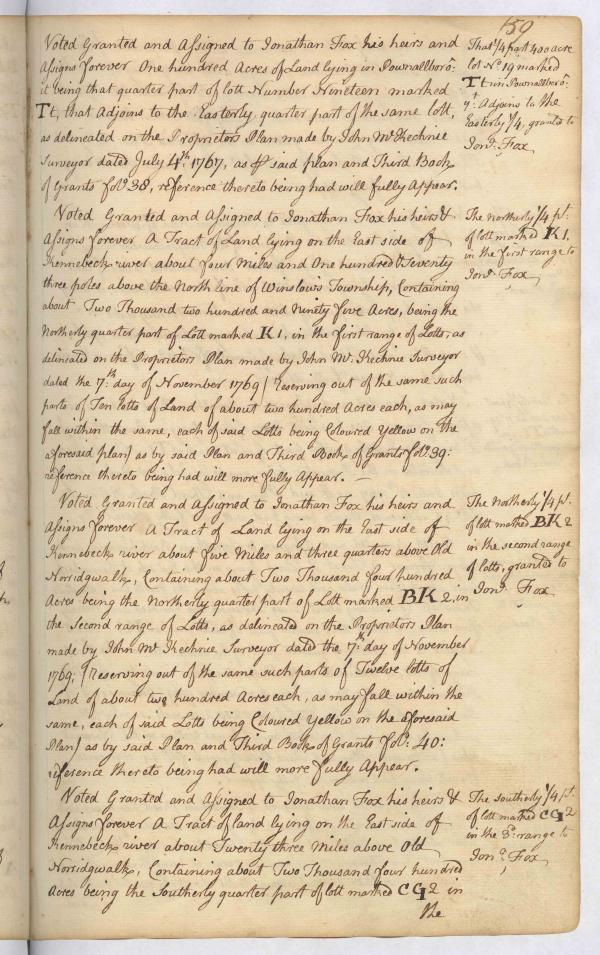 159
Voted Granted and Assigned to Jonathan Fox his heirs and
Assigns forever One hundred Acres of Land lying in Pownallboro:
it being that quarter part of lott Number Nineteen marked
Tt, that Adjoins to the Easterly, quarter part of the same lott,
as delineated on the Proprietors Plan made by John McKechnie
Surveyor dated July 4th. 1767, as # said plan and Third Book
of Grants folo. 38, reference thereto being had will fully Appear.
That 1/4 part 400 acre
lot No. 19 marked
Tt in Pownallboro:
yt. Adjoins to the
Easterly 1/4, granted to
Jona. Fox
Voted Granted and Assigned to Jonathan Fox his heirs &
Assigns forever A Tract of Land lying on the East side of
Kennebeck river about four Miles and One hundred & Seventy
three poles above the North line of Winslows Township, Containing
about Two Thousand two hundred and Ninety five Acres, being the
Northerly quarter part of Lott marked K1, in the first range of Lotts, as
delineated on the Proprietors Plan made by John Mc. Kechnie Surveyor
dated the 7th. day of November 1769 [Reserving out of the same such
parts of Ten lotts of Land of about two hundred Acres each, as may
fall within the same, each of said Lotts being Coloured Yellow on the
aforesaid plan] as by said Plan and Third Book of Grants folo. 39:
reference thereto being had will more fully Appear. —
The Northerly 1/4 pt.
of lott marked K1.
in the first range to
Jona. Fox
Voted Granted and Assigned to Jonathan Fox his heirs and
Assigns forever A Tract of Land lying on the East side of
Kennebeck river about five Miles and three quarters above Old
Norridgwalk, Containing about Two Thousand four hundred
Acres being the Northerly quarter part of Lott marked BK2, in
the Second range of Lotts, as delineated on the Proprietors Plan
made by John Mc Kechnie Surveyor dated the 7th. day of November
1769, [Reserving out of the same such parts of Twelve lotts of
Land of about two hundred Acres each, as may fall within the
same, each of said Lotts being Coloured Yellow on the aforesaid
Plan] as by said Plan and Third Book of Grants folo. 40:
reference thereto being had will more fully Appear.
The Northerly 1/4 pt.
of lott marked BK2
in the second range
of lotts, granted to
Jona. Fox
Voted Granted and Assigned to Jonathan Fox his heirs &
Assigns forever A Tract of land lying on the East side of
Kennebeck river about Twenty three Miles above Old
Norridgwalk, Containing about Two Thousand four hundred
Acres being the Southerly quarter part of lott marked CG2 in
the
The Southerly 1/4 pt.
of lott marked CG2
in the 3d. range to
Jona. Fox